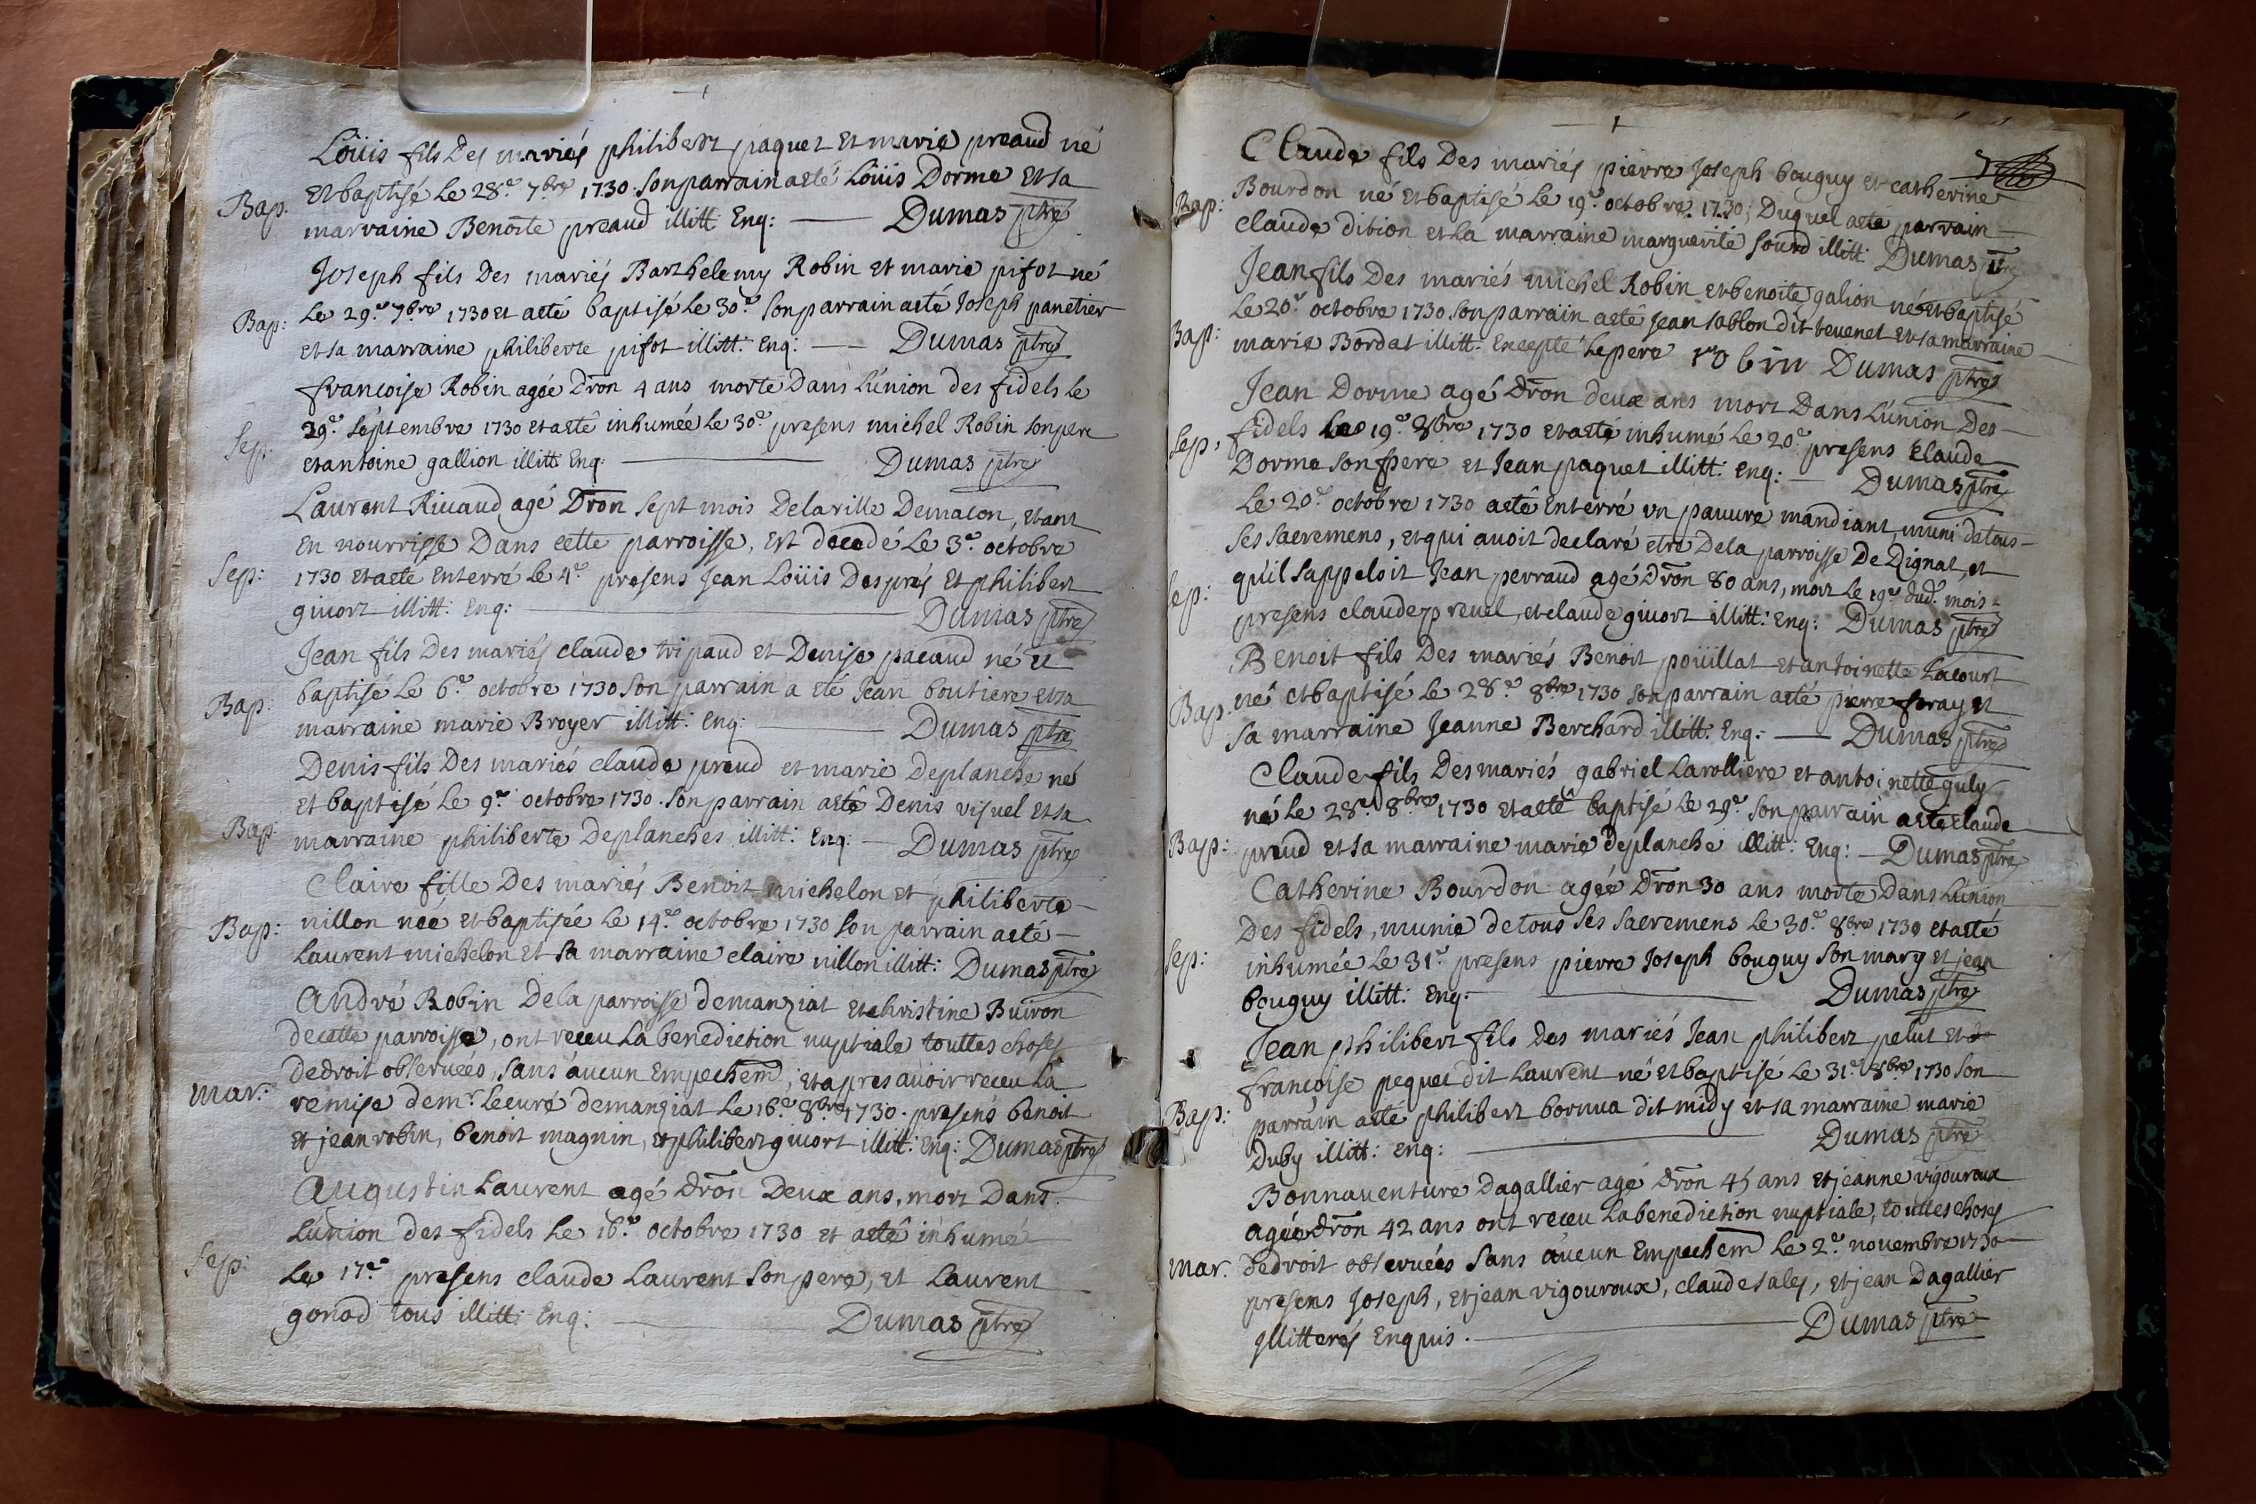 Loüis fils Des mariés philibert paquet Et marie preaud né
Bap. Et baptisé Le 28.e 7.bre 1730. Son parrain a eté Loüis Dorme Et sa
marraine Benoite preaud illitt: Enq: Dumas ptre
Joseph fils Des mariés Barthelemy Robin et marie pifot né
Bap: Le 29.e 7bre 1730 et a eté baptisé Le 30.e Son parrain a eté Joseph panetier
et sa marraine philiberte pifot illitt: Enq: Dumas ptre
francoise Robin agée Dron 4 ans morte Dans L'union des fidels Le
Sep: 29.e Septembre 1730 et a eté inhumée Le 30.e presens michel Robin Son pere
et antoine gallion illitt Enq: Dumas ptre
Laurent Riuaud agé Dron Sept mois De la ville Demacon, Etant
En nourrisse Dans cette parroisse, Est decedé Le 3.e octobre
Sep: 1730 et a eté Enterré Le 4.e presens Jean Loüis Desprès Et philibert
giuort illitt: Enq: Dumas ptre
Jean fils Des mariés claude tripaud et Denise pacaud né et
Bap: baptisé Le 6.e octobre 1730 Son parrain a eté Jean boutiere et sa
marraine marie Broyer illitt: Enq: Dumas ptre
Denis fils Des mariés claude preud et marie Deplanche né
et baptisé Le 9.e octobre 1730. Son parrain a eté Denis visuel et sa
Bap: marraine philiberte Deplanches illitt: Enq: Dumas ptre
Claire fille Des mariés Benoit michelon et philiberte
Bap: nillon née et baptisée Le 14.e octobre 1730 Son parrain a eté
Laurent michelon et Sa marraine claire nillon illitt: Dumas ptre
André Robin De la parroisse demanziat et christine Buiron
de cette parroisse, ont receu La benediction nuptiale touttes choses
de droit obseruées, Sans aucun Empechem; et apres auoir receu La
mar: remise de m.r Le curé demanziat Le 16.e 8bre 1730. presens benoit
et jean robin, benoit magnin, et philibert giuort illitt: Enq: Dumas ptre
Augustin Laurent agé dron Deux ans, mort Dans
L'union Des fidels Le 16.e octobre 1730 et a eté inhumé
Sep: Le 17.e presens claude Laurent Son pere, et Laurent
gonod tous illitt: Enq: Dumas ptre
Claude fils Des mariés pierre Joseph bouguy et catherine
Bap: Bourdon né et baptisé Le 19.e octobre 1730; Duquel a eté parrain
claude dition et La marraine marguerite Sourd illitt: Dumas ptre
Jean fils Des mariés michel Robin et benoite galion né et baptisé
Le 20.e octobre 1730 Son parrain a eté Jean Sablon dit teuenet et sa marraine
Bap: marie Bordat illitt: Excepté Le pere robin Dumas ptre
Jean Dorme agé Dron deux ans mort Dans L'union Des
Sep: fidels Le 19.e 8bre 1730 et a eté inhumé Le 20.e presens claude
Dorme Son pere et Jean paquet illitt: Enq: Dumas ptre
Le 20.e octobre 1730 a eté Enterré un pauure mandiant, muni de tous
Ses Sacremens, et qui auoit declaré etre De la parroisse De Dignat, et
Sep: qu'il S'appeloit Jean perraud agé Dron 80 ans, mort Le 19.e dud. mois
presens claude preuel, et claude giuort illitt: Enq: Dumas ptre
Benoit fils Des mariés Benoit poüillat et antoinette Lacourt
Bap. né et baptisé Le 28.e 8bre 1730 Son parrain a eté pierre foray et
Sa marraine Jeanne Berchard illitt: Enq: Dumas ptre
Claude fils Des mariés gabriel Larolliere et antoinette guly
né Le 28.e 8bre 1730 et a eté baptisé Le 29.e Son parrain a eté claude
Bap: preud et sa marraine marie deplanche illitt: Enq: Dumas ptre
Catherine Bourdon agée Dron 30 ans morte Dans L'union
Des fidels, munie de tous Ses Sacremens Le 30.e 8bre 1730 et a eté
Sep: inhumée Le 31.e presens pierre Joseph bouguy Son mary et jean
bouguy illitt: Enq: Dumas ptre
Jean philibert fils Des mariés Jean philibert pelut et
françoise pequet dit Laurent né et baptisé Le 31.e 8bre 1730 Son
Bap: parrain a eté philibert bornua dit midy et sa marraine marie
Duby illitt: Enq: Dumas ptre
Bonnauenture Dagallier agé dron 45 ans et jeanne vigouroux
agée dron 42 ans ont receu La benediction nuptiale, touttes choses
mar. de droit obseruées Sans aucun Empechem Le 2.e nouembre 1730
presens Joseph, et jean vigouroux, claude Sales, et jean Dagallier
illitterés Enquis. Dumas ptre